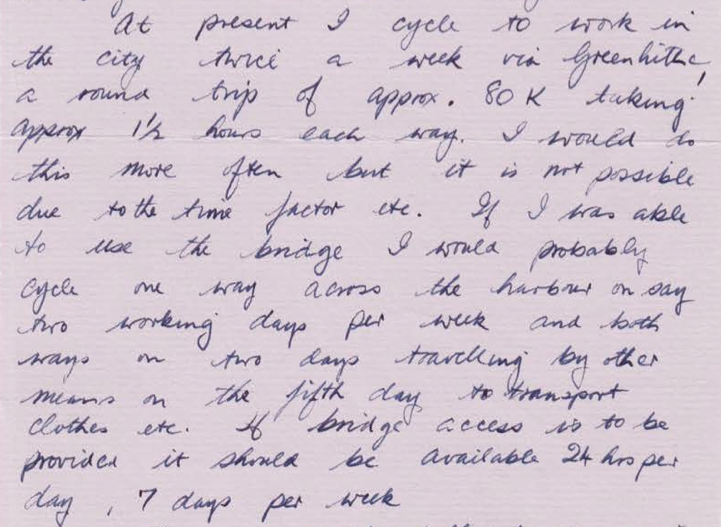 At present I cycle to work in
the city twice a week via Greenhithe,
a round trip of approx. 80 K taking
approx 1½ hours each way. I would do
this more often but it is not possible
due to the time factor etc. If I was able
to use the bridge I would probably
cycle one way across the harbour on say
two working days per week and both
ways on two days travelling by other
means on the fifth day to transport
clothes etc. If bridge access is to be
provided it should be available 24 hrs per
day, 7 days per week